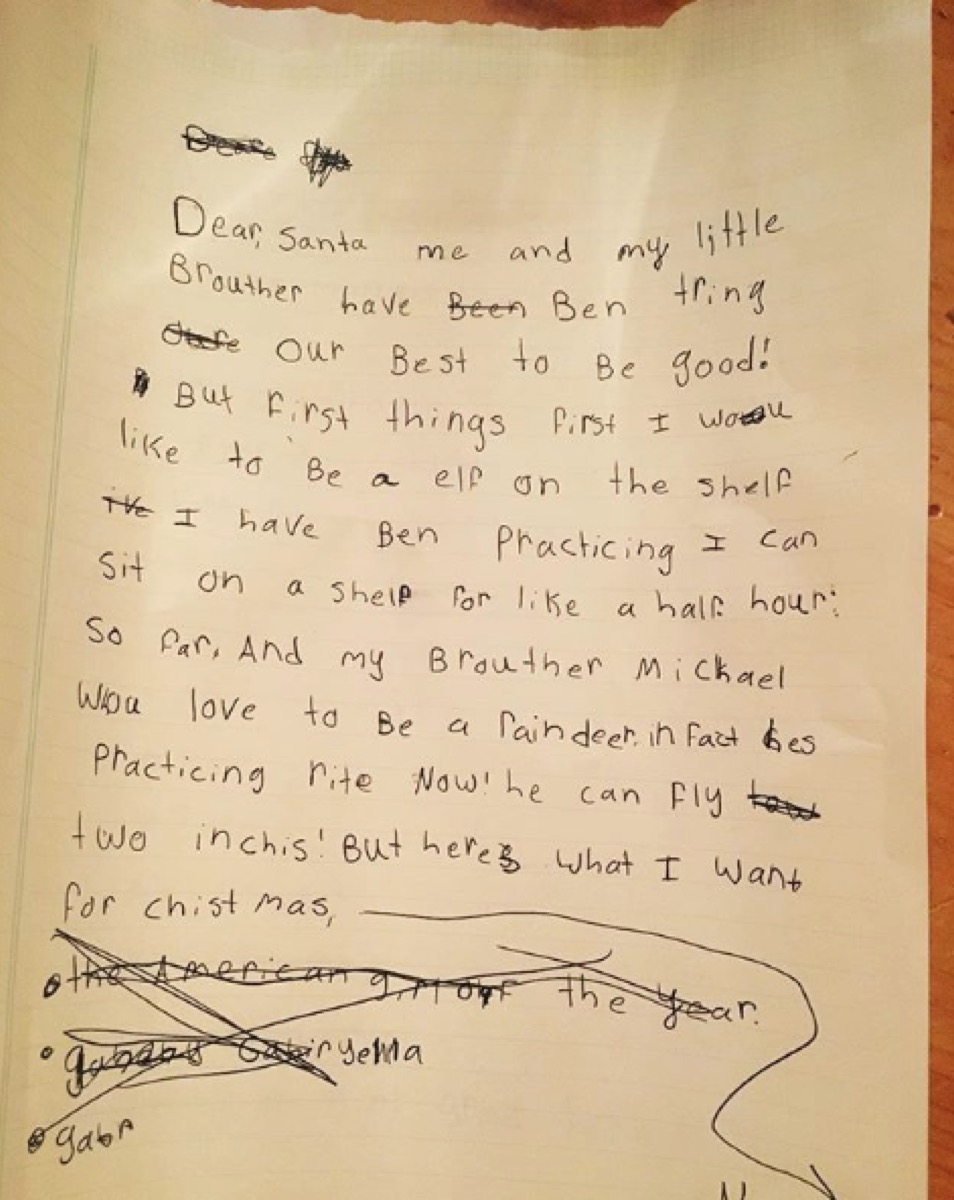 Dear, Santa me and my little
Brouther have Been Ben tring
our Best to Be good!
But first things first I wou
like to Be a elf on the shelf
I've I have Ben Practicing I can
sit on a shelf for like a half hour:
So far, And my Brouther Michael
wou love to Be a raindeer. in fact hes
Practicing rite Now! he can fly
two inchis! But here's what I want
for chistmas,
• the American girl of the year.
• Gabiryella
• gabr